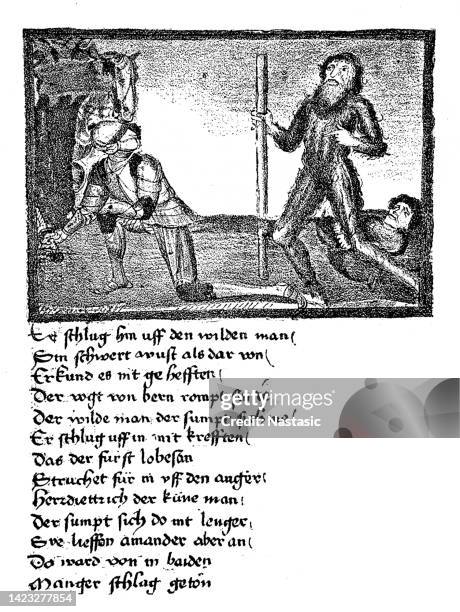 Er schlug hin uff den wilden man
Sin schwert wust als dar von
Er kund es nit ge hefften
Der vogt von bern
Der wilde man der sumpt
Er schlug uff in mit krefften
Das der fürst lobesan
Struchet für in vff den anger
Herr diettrich der küne man
Der sumpt sich do nit lenger
Sye lieffen ainander aber an
Do ward von in baiden
Manger schlag getön
gettyimages
Credit: Nastasic
1423277854